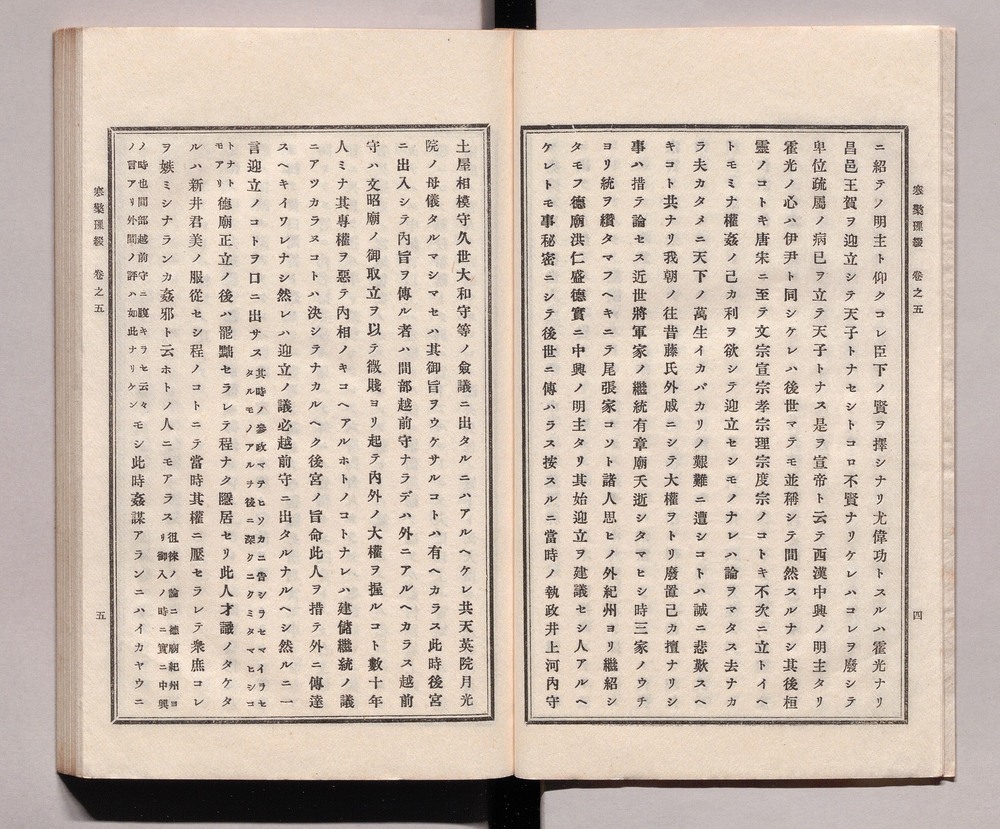 寒檠璅綴　卷之五　四
ニ紹テノ明主ト仰クコレ臣下ノ賢ヲ擇シナリ尤偉功トスルハ霍光ナリ
昌邑王賀ヲ迎立シテ天子トナセシトコロ不賢ナリケレハコレヲ廢シテ
卑位疏屬ノ病已ヲ立テ天子トナス是ヲ宣帝ト云テ西漢中興ノ明主タリ
霍光ノ心ハ伊尹ト同シケレハ後世マテモ並稱シテ間然スルナシ其後桓
靈ノコトキ唐宋ニ至テ文宗宣宗孝宗理宗度宗ノコトキ不次ニ立トイヘ
トモミナ權姦ノ己カ利ヲ欲シテ迎立セシモノナレハ論ヲマタス去ナカ
ラ夫カタメニ天下ノ萬生イカバカリノ艱難ニ遭シコトハ誠ニ悲歎スヘ
キコト共ナリ我朝ノ往昔藤氏外戚ニシテ大權ヲトリ廢置己カ擅ナリシ
事ハ措テ論セス近世將軍家ノ繼統有章廟夭逝シタマヒシ時三家ノウチ
ヨリ統ヲ纉タマフヘキニテ尾張家コソト諸人思ヒノ外紀州ヨリ繼紹シ
タモフ德廟洪仁盛德實ニ中興ノ明主タリ其始迎立ヲ建議セシ人アルヘ
ケレトモ事秘密ニシテ後世ニ傳ハラス按スルニ當時ノ執政井上河內守
土屋相模守久世大和守等ノ僉議ニ出タルニハアルヘケレ共天英院月光
院ノ母儀タルマシマセハ其御旨ヲウケサルコトハ有ヘカラス此時後宮
ニ出入シテ內旨ヲ傳ル者ハ間部越前守ナラデハ外ニアルヘカラス越前
守ハ文昭廟ノ御取立ヲ以テ微賤ヨリ起テ內外ノ大權ヲ握ルコト數十年
人ミナ其專權ヲ惡テ內相ノキコヘアルホトノコトナレハ建儲繼統ノ議
ニアツカラヌコトハ決シテナカルヘク後宮ノ旨命此人ヲ措テ外ニ傳達
スヘキイワレナシ然レハ迎立ノ議必越前守ニ出タルナルヘシ然ルニ一
言迎立ノコトヲ口ニ出サス
其時ノ參政マテヒソカニ告シラセマイラセ
タルモノアルヲ後ニ深クニクミタマヒシコ
トナト
モアリ
德廟正立ノ後ハ罷黜セラレテ程ナク隱居セリ此人才識ノタケタ
ルハ新井君美ノ服從セシ程ノコトニテ當時其權ニ壓セラレテ衆庶コレ
ヲ嫉ミシナランカ姦邪ト云ホトノ人ニモアラス
徂徠ノ論ニ德廟紀州ヨ
リ御入ノ時ニ實ニ中興
ノ時也間部越前守ニ腹キラセ云々
ノ言アリ外間ノ評ハ如此ナリケン
モシ此時姦謀アランニハイカヤウニ
寒檠璅綴　卷之五　五